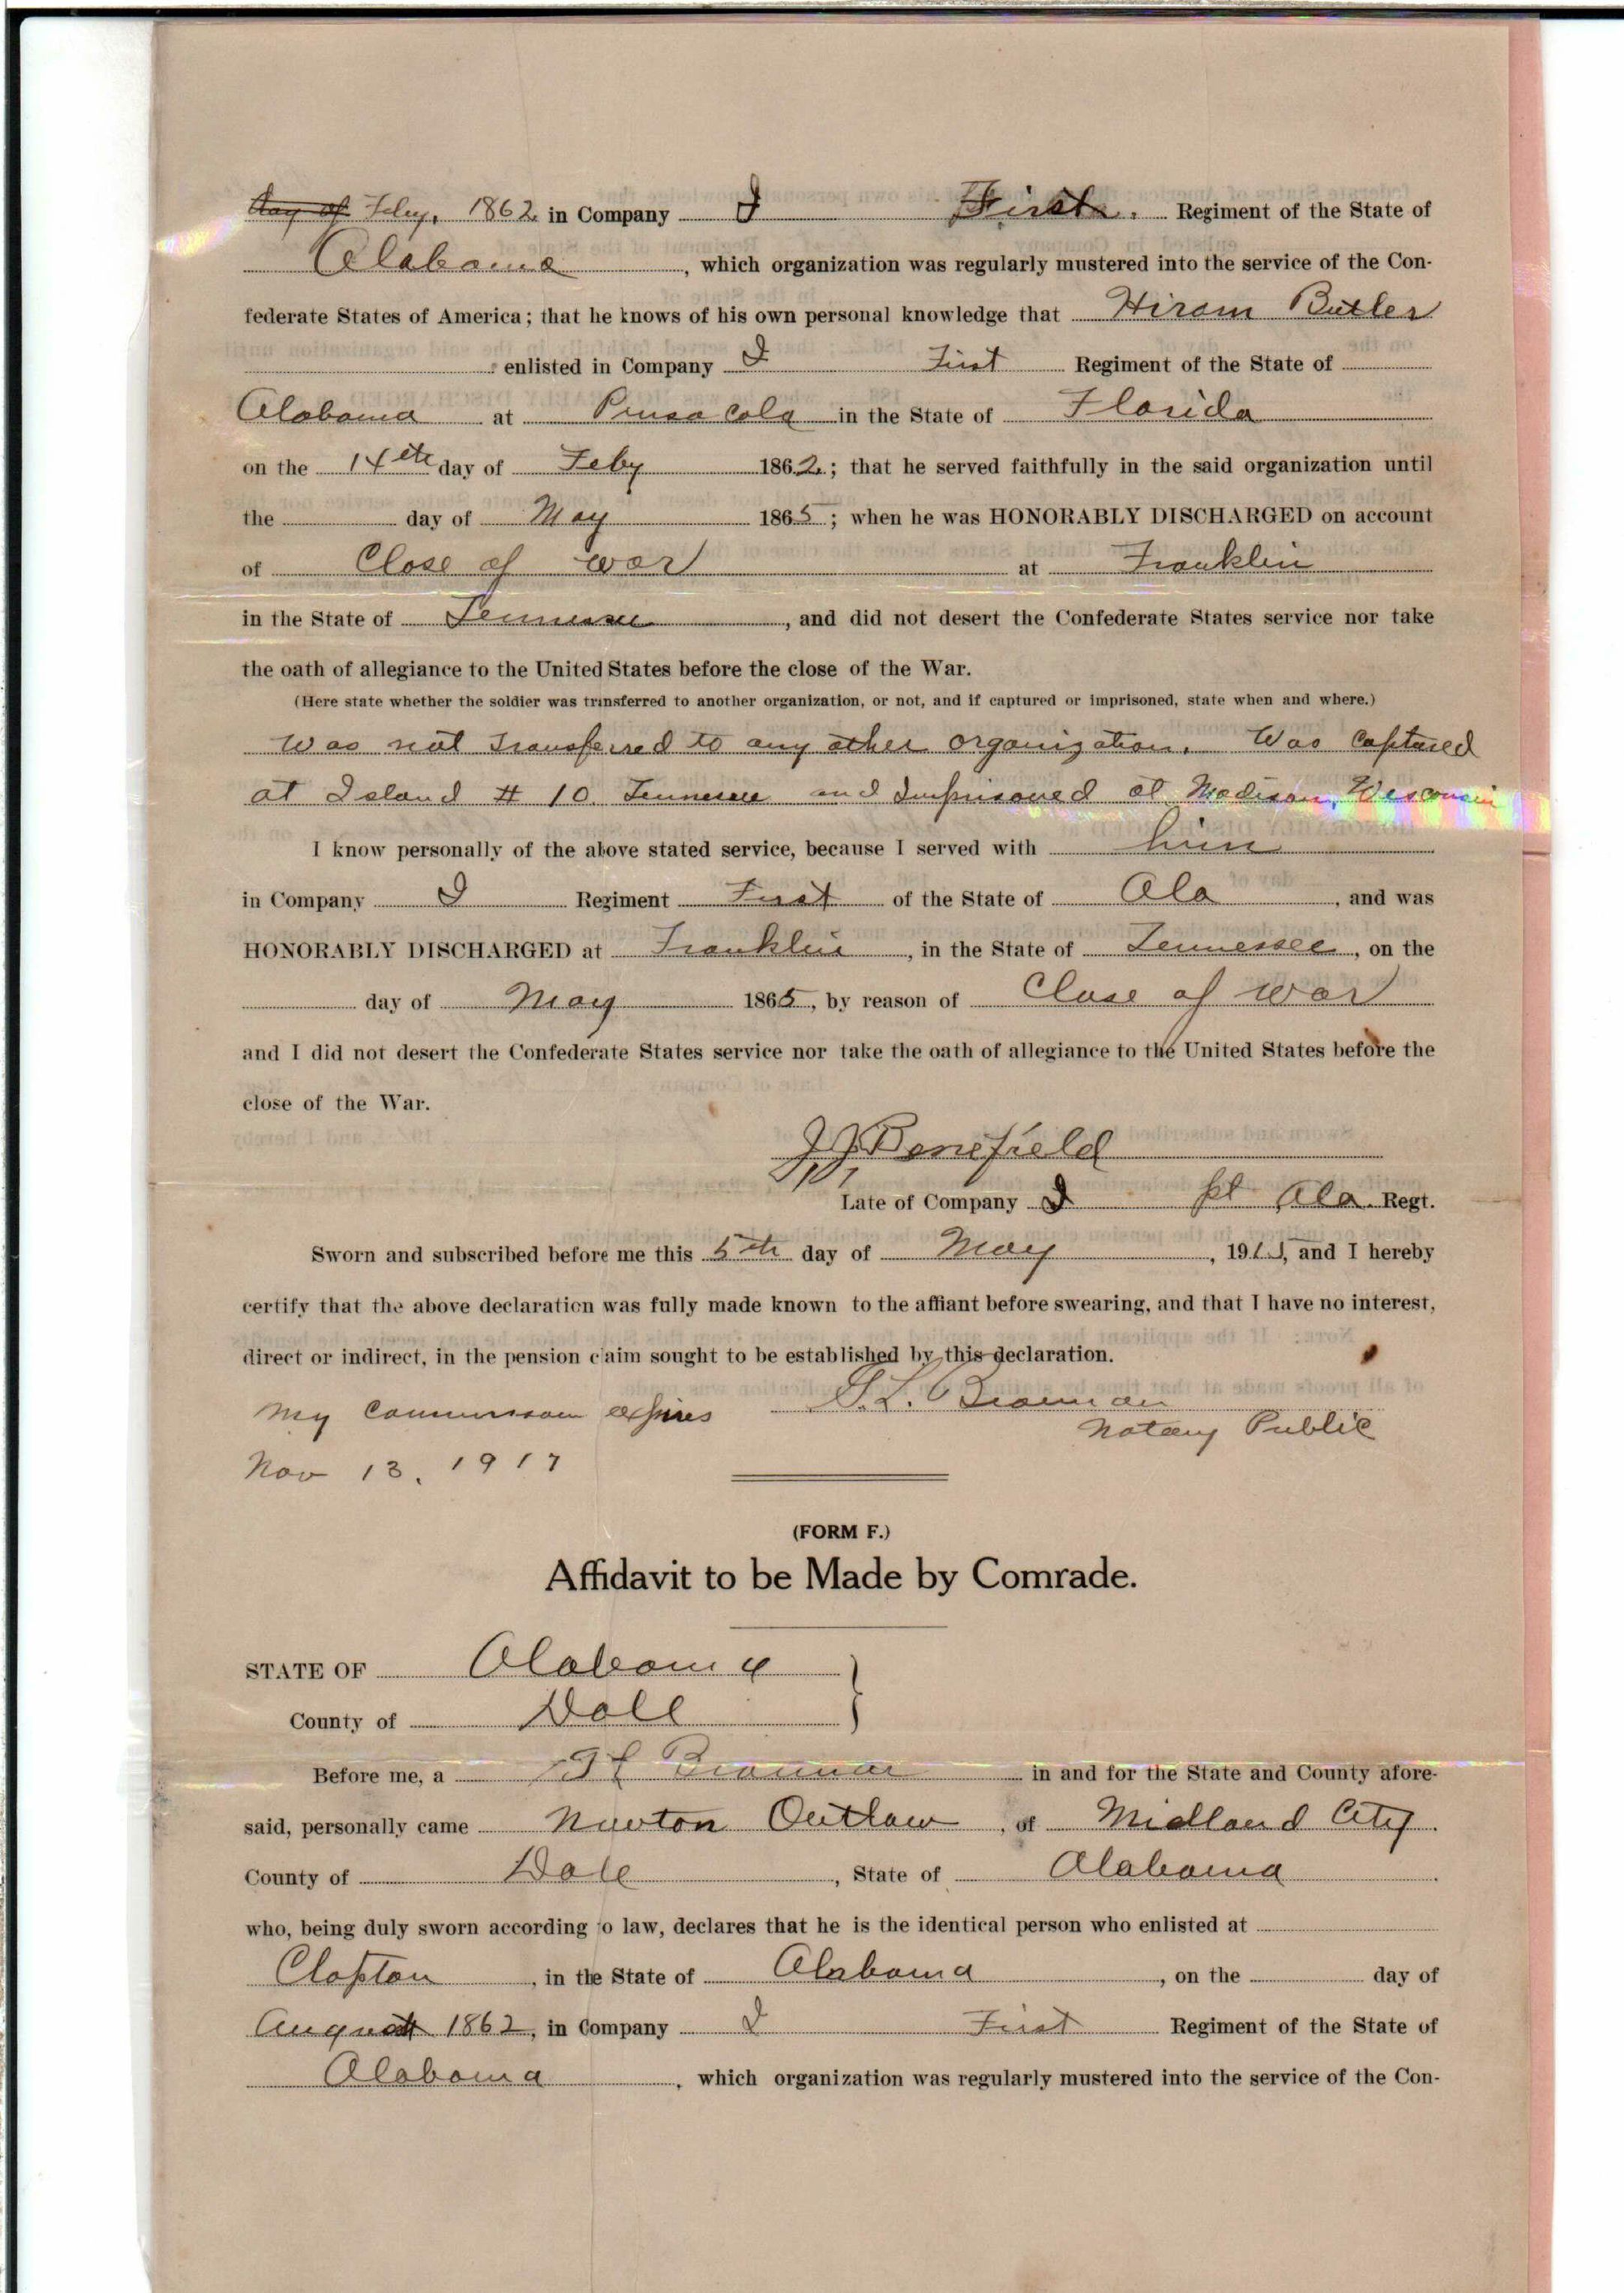 day of Feby, 1862 in Company I First. Regiment of the State of
Alabama, which organization was regularly mustered into the service of the Con-
federate States of America; that he knows of his own personal knowledge that Hiram Butler
enlisted in Company I First Regiment of the State of
Alabama at Pensacola in the State of Florida
on the 14th day of Feby 1862; that he served faithfully in the said organization until
the day of May 1865; when he was HONORABLY DISCHARGED on account
of Close of war at Franklin
in the State of Tennessee, and did not desert the Confederate States service nor take
the oath of allegiance to the United States before the close of the War.
(Here state whether the soldier was transferred to another organization, or not, and if captured or imprisoned, state when and where.)
Was not Transferred to any other organization. Was Captured
at Island # 10 Tennessee and Imprisoned at Madison, Wisconsin
I know personally of the above stated service, because I served with him
in Company I Regiment First of the State of Ala, and was
HONORABLY DISCHARGED at Franklin, in the State of Tennessee, on the
day of May 1865, by reason of Close of war
and I did not desert the Confederate States service nor take the oath of allegiance to the United States before the
close of the War.
J J Benefield
Late of Company I Ala. Regt.
Sworn and subscribed before me this 5th day of May, 191, and I hereby
certify that the above declaration was fully made known to the affiant before swearing, and that I have no interest,
direct or indirect, in the pension claim sought to be established by this declaration.
My Commission expires
Notary Public
Nov 13, 1917
(FORM F.)
Affidavit to be Made by Comrade.
STATE OF Alabama
County of Dale
Before me, a in and for the State and County afore-
said, personally came Newton Outlaw, of Midland City.
County of Dale, State of Alabama.
who, being duly sworn according to law, declares that he is the identical person who enlisted at
Clopton, in the State of Alabama, on the day of
August 1862, in Company I First Regiment of the State of
Alabama, which organization was regularly mustered into the service of the Con-